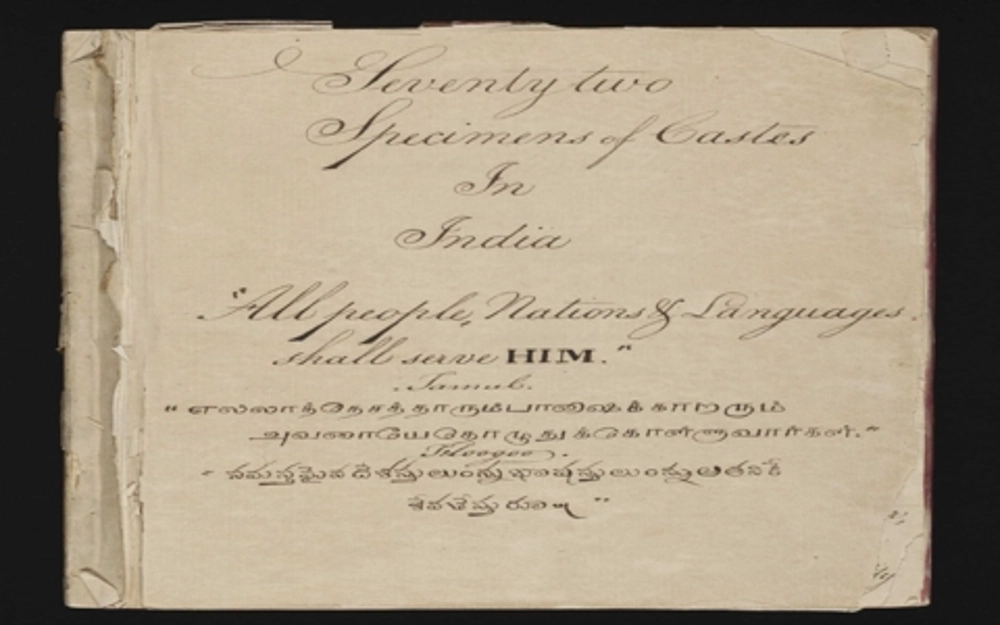 Seventy two
Specimens of Castes
In
India
"All people, Nations & Languages
shall serve HIM."
Tamul.
"எல்லாத்தேசத்தாரும்பாஷைக்காரரும்
அவரையேதொழுதுக்கொள்ளுவார்கள்."
Teloogoo.